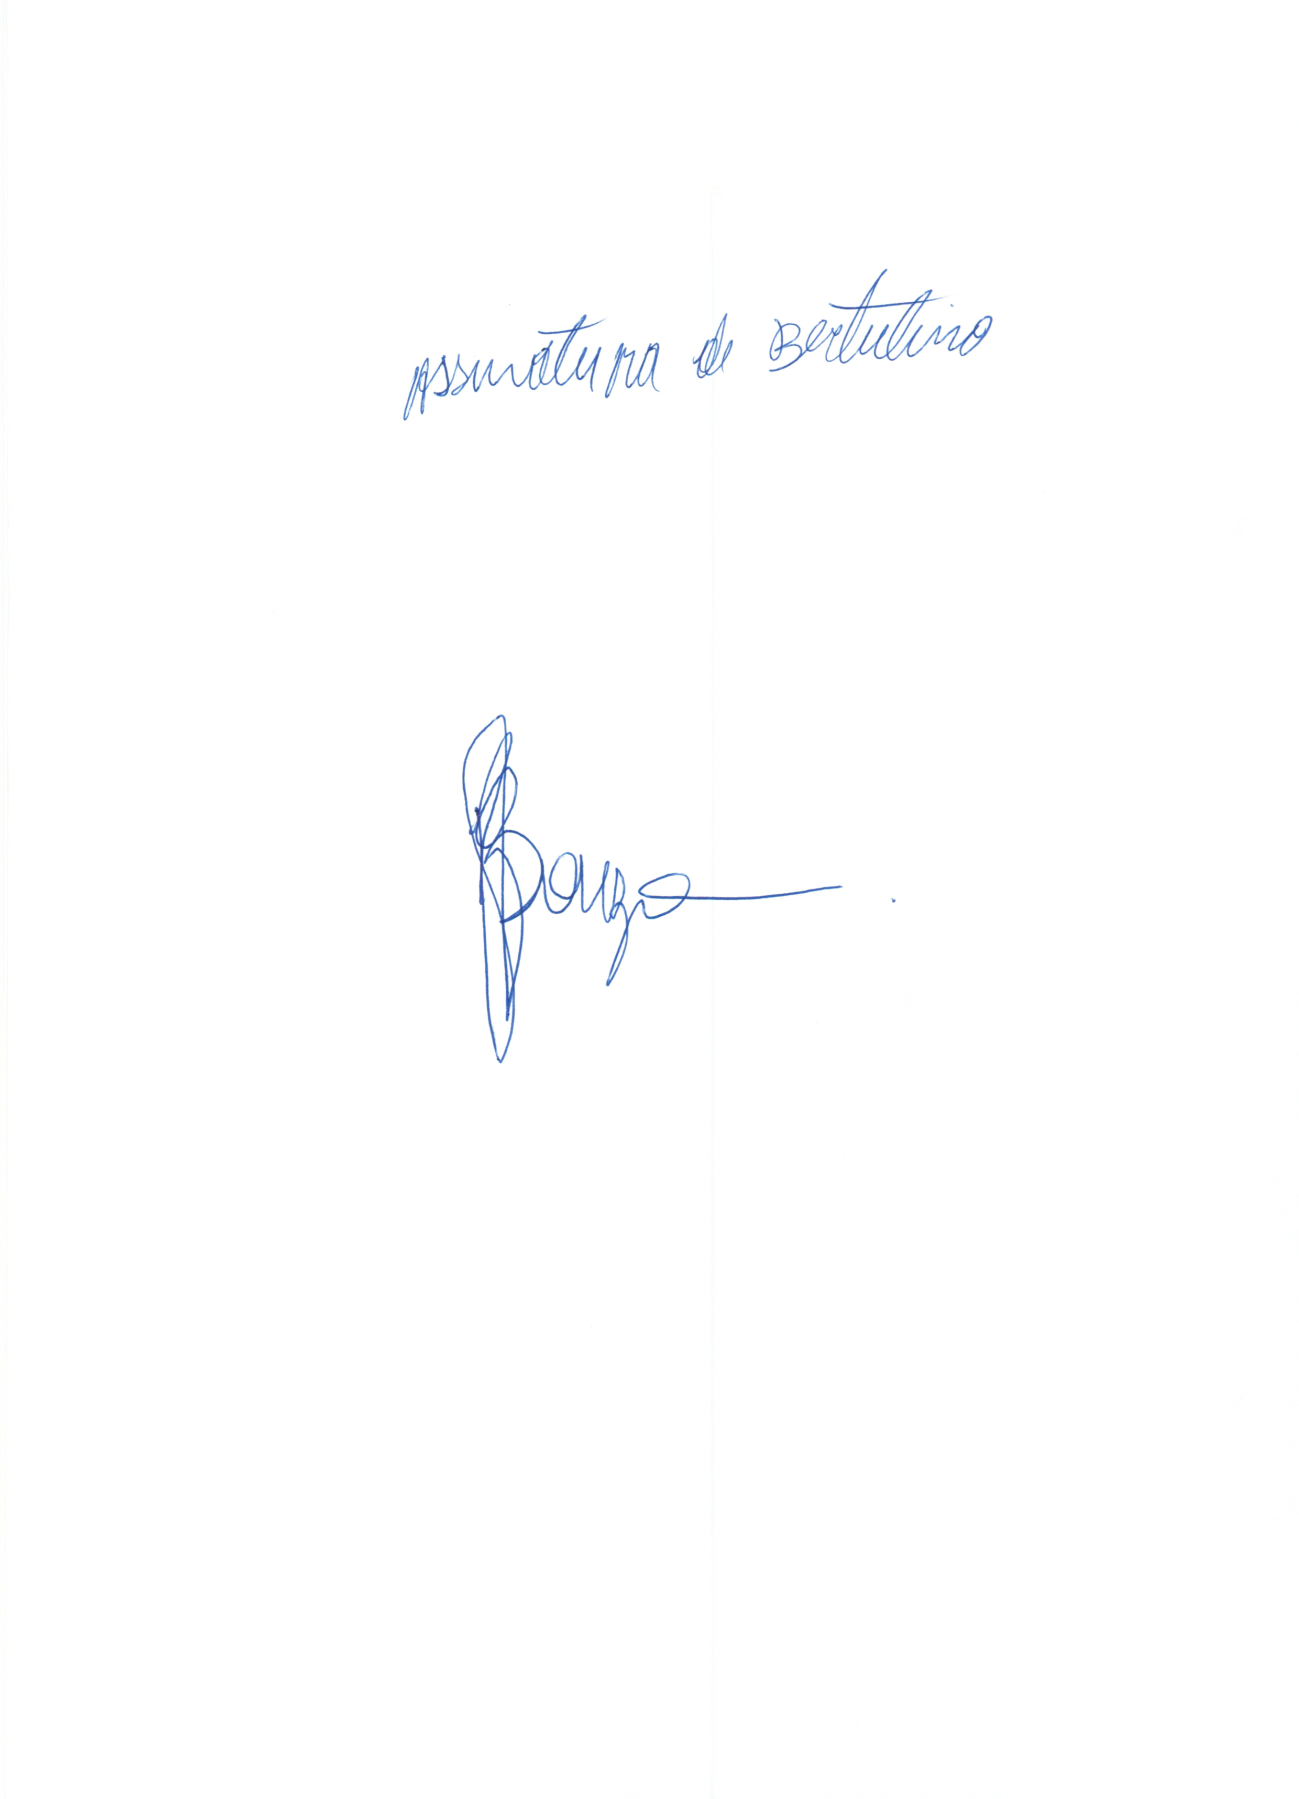 Assinatura de Bertulino
Souza